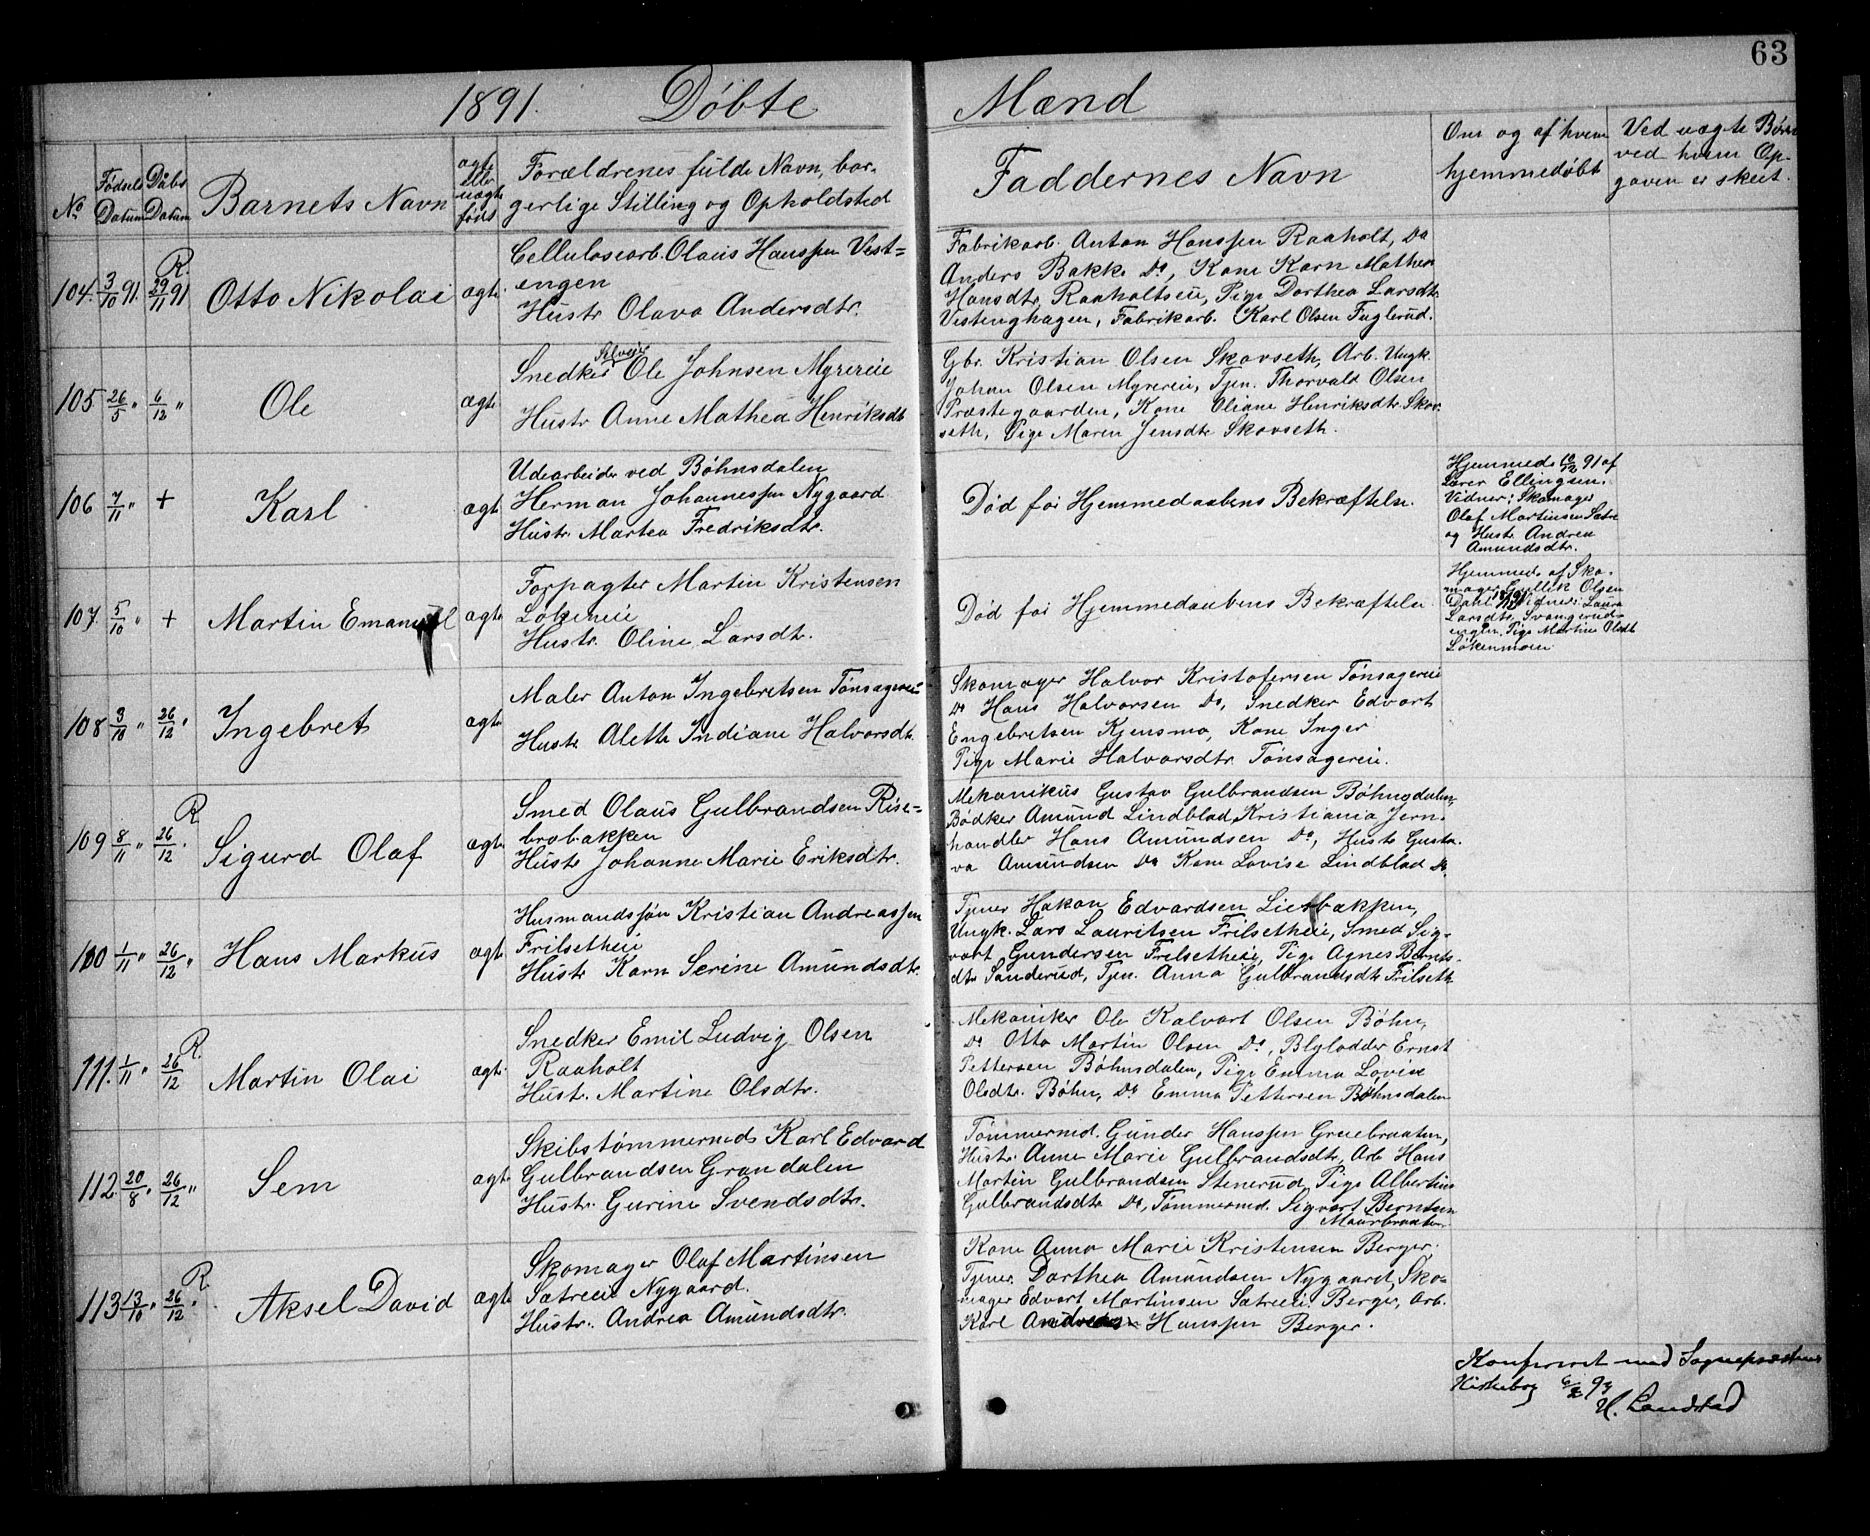 63
1891. Døbte Mænd
No
Fødsels Datum
Daabs Datum
Barnets Navn
ægte eller uægte født
Forældrenes fulde Navn, bor-
gerlige Stilling og Opholdsted
Faddernes Navn
Om og af hvem
hjemmedøbt
Ved uægte Børn
ved hvem Op-
gaven er skeet.
104. 3/10 91. R. 29/11 91 Otto Nikolai ægte.
Cellulosearb. Olaus Hanssen Vest-
engen
Hustr. Olava Andersdtr.
Fabrikarb. Anton Hanssen Raaholt, Do
Anders Bakke Do, Kone Karn Mathea
Hansdtr. Raaholtseie, Pige Dorthea Larsdtr.
Vestenghagen, Fabrikarb. Karl Olsen Fuglerud.
105 26/5 " 6/12 " Ole ægte
Snedker Selveier Ole Johnsen Myrereie
Hustr Anne Mathea Henriksdtr
Gbr. Kristian Olsen Skovseth, Arb. Ungk.
Johan Olsen Myrereie, Tjen. Thorvald Olsen
Præstegaarden, Kone Oliane Henriksdtr. Skov-
seth, Pige Maren Jensdtr Skovseth.
106 7/11 " + Karl ægte
Udearbeider ved Bøhnsdalen
Herman Johannessen Nygaard
Hustr. Martea Fredriksdtr.
Død før Hjemmedaabens Bekræftelse.
Hjemmed. 10/12 91 af
Lærer Ellingsen.
Vidner: Skomager
Olaf Martinsen Sætre
og Hustr Andrea
Amundsdtr.
107. 5/10 " + Martin Emanuel ægte
Forpagter Martin Kristensen
Løkeneie
Hustr. Oline Larsdtr.
Død før Hjemmedaabens Bekræftelse.
Hjemmed. af Sko-
mager Gullik Olsen
Dahl Vidner: Laura
Larsdtr. Svangerud-
engen, Pige Martine Olsdtr
Løkenmoen
108 9/10 " 26/12 " Ingebret ægte
Maler Anton Ingebretsen Tønsagereie
Hustr Alette Indiane Halvorsdtr.
Skomager Halvor Kristofersen Tønsagereie
Do Hans Halvorsen Do, Snedker Edvart
Engebretsen Kjensmo, Kone Inger
Pige Marie Halvorsdtr. Tønsagereie.
109 8/11 " R 26/12 " Sigurd Olaf ægte.
Smed Olaus Gulbrandsen Rise-
brobakken
Hustr Johanne Marie Eriksdtr.
Mekanikus Gustav Gulbrandsen Bøhnsdalen,
Bødker Amund Lindblad, Kristiania Jern-
handler Hans Amundsen Do, Hustr Gusta-
va Amundsen Do Kone Lovise Lindblad Do.
110 1/11 " 26/12 " Hans Markus ægte.
Husmandssøn Kristian Andreassen
Frilsetheie
Hustr Karn Serine Amundsdtr.
Tjener Hakon Edvardsen Lierbakken,
Ungk. Lars Lauritsen Frilsetheie, Smed Sig-
vart Gundersen Frilsetheie, Pige Agnes Bernts-
dtr Sanderud, Tjen. Anna Gulbrandsdtr Frilseth
111. 1/11 " R. 26/12 Martin Olai ægte.
Snedker Emil Ludvig Olsen
Raaholt
Hustr. Martine Olsdtr.
Mekaniker Ole Kalvart Olsen Bøhn,
Do Otto Martin Olsen Do, Blylodder Ernst
Pettersen Bøhnsdalen, Pige Emma Lovise
Olsdtr. Bøhn, Do Emma Pettersen Bøhnsdalen
112. 20/8 " 26/12 " Sem ægte.
Skibstømmermd. Karl Edvard
Gulbrandsen Grandalen
Hustr. Gurine Svendsdtr.
Tømmermd. Gunder Hanssen Gruebraaten,
Hustr. Anne Marie Gulbrandsdtr, Arb Hans
Martin Gulbrandsen Stenerud, Pige Albertine
Gulbrandsdtr Do, Tømmermd. Sigvart Berntsen
Maurbraaten
113 13/10 " R. 26/12 " Aksel David ægte
Skomager Olaf Martinsen
Sætreeie Nygaard.
Hustr. Andrea Amundsdtr.
Kone Anna Marie Kristensen Berger,
Tjener Dorthea Amundsen Nygaard, Sko-
mager Edvart Martinsen Sætreeie. Berger, Arb.
Karl Hanssen Berger.
Konfereret med Sognepræstens
Kirkebog 6/2 93
H. Landstad